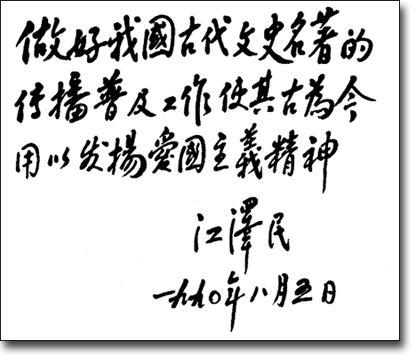 做好我國古代文史名著的
传播普及工作使其古為今
用以发揚愛國主義精神
江澤民
一九九〇年八月五日